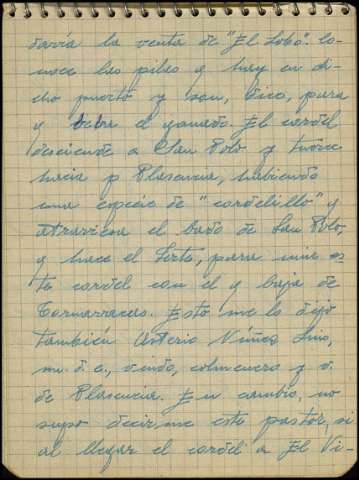 davía la venta de "El Lobo". Co-
noce las pilas y hay en di-
cho puerto y son, dice, para
y beba el ganado. El cordel
desciende a San Polo y tuerce
hacia p Plasencia, habiendo
una especie de "cordelillo" y
atraviesa el vado de San Polo,
y hace el Jerte, para unir es
te cordel con el y baja de
Tornavacas. Esto me lo dijo
también Asterio Núñez Sino,
m. d. e., viudo, colmenero y v.
de Plasencia. En cambio, no
supo decirme este pastor, si
al llegar el cordel a El Vi-